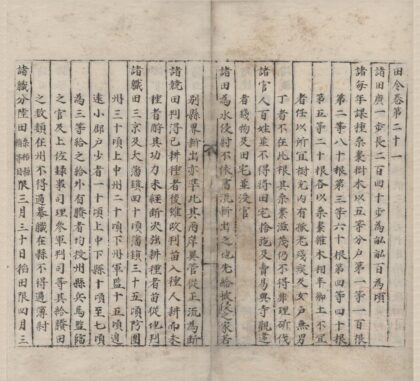 田令卷第二十一
諸田廣一步長二百四十步為畝畝百為頃
諸每年課種桑棗樹木以五等分戶第一等一百根
第二等八十根第三等六十根第四等四十根
第五等二十根各以桑棗雜木相半鄉土不宜
者任以所宜樹充內有孤老殘疾及女戶無男
丁者不在此根其桑棗滋茂仍不得非理斫伐
諸官人百姓並不得將田宅捨施及賣易與寺觀違
者錢物及田宅並沒官
諸田為水侵射不依舊流新出之地先給被侵之家若
別縣界新出亦準此其兩岸異管從正流為斷
諸競田判得已耕種者後雖改判苗入種人耕而未
種者酬其功力未經斷決強耕種者苗從地判
諸職田三京及大藩鎮四十頃藩鎮三十五頃防團
州三十頃上中州二十頃下州軍監十五頃邊
遠小郡戶少者一十頃上中下縣十頃至七頃
為三等給之給外有賸者均授州縣兵馬監臨
之官及上佐錄事司理參軍判司等其給賸田
之數類在州不得過幕職在縣不得過簿尉
諸職分陸田限三月三十日稻田限四月三